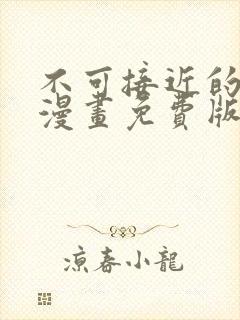 不可接近的
漫畫免費版
涼春小龍